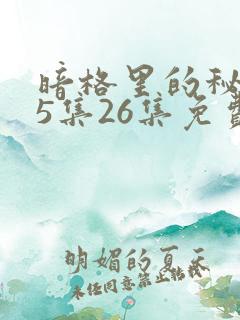 暗格里的秘
5集26集免费
明媚的夏天
未经同意禁止转载